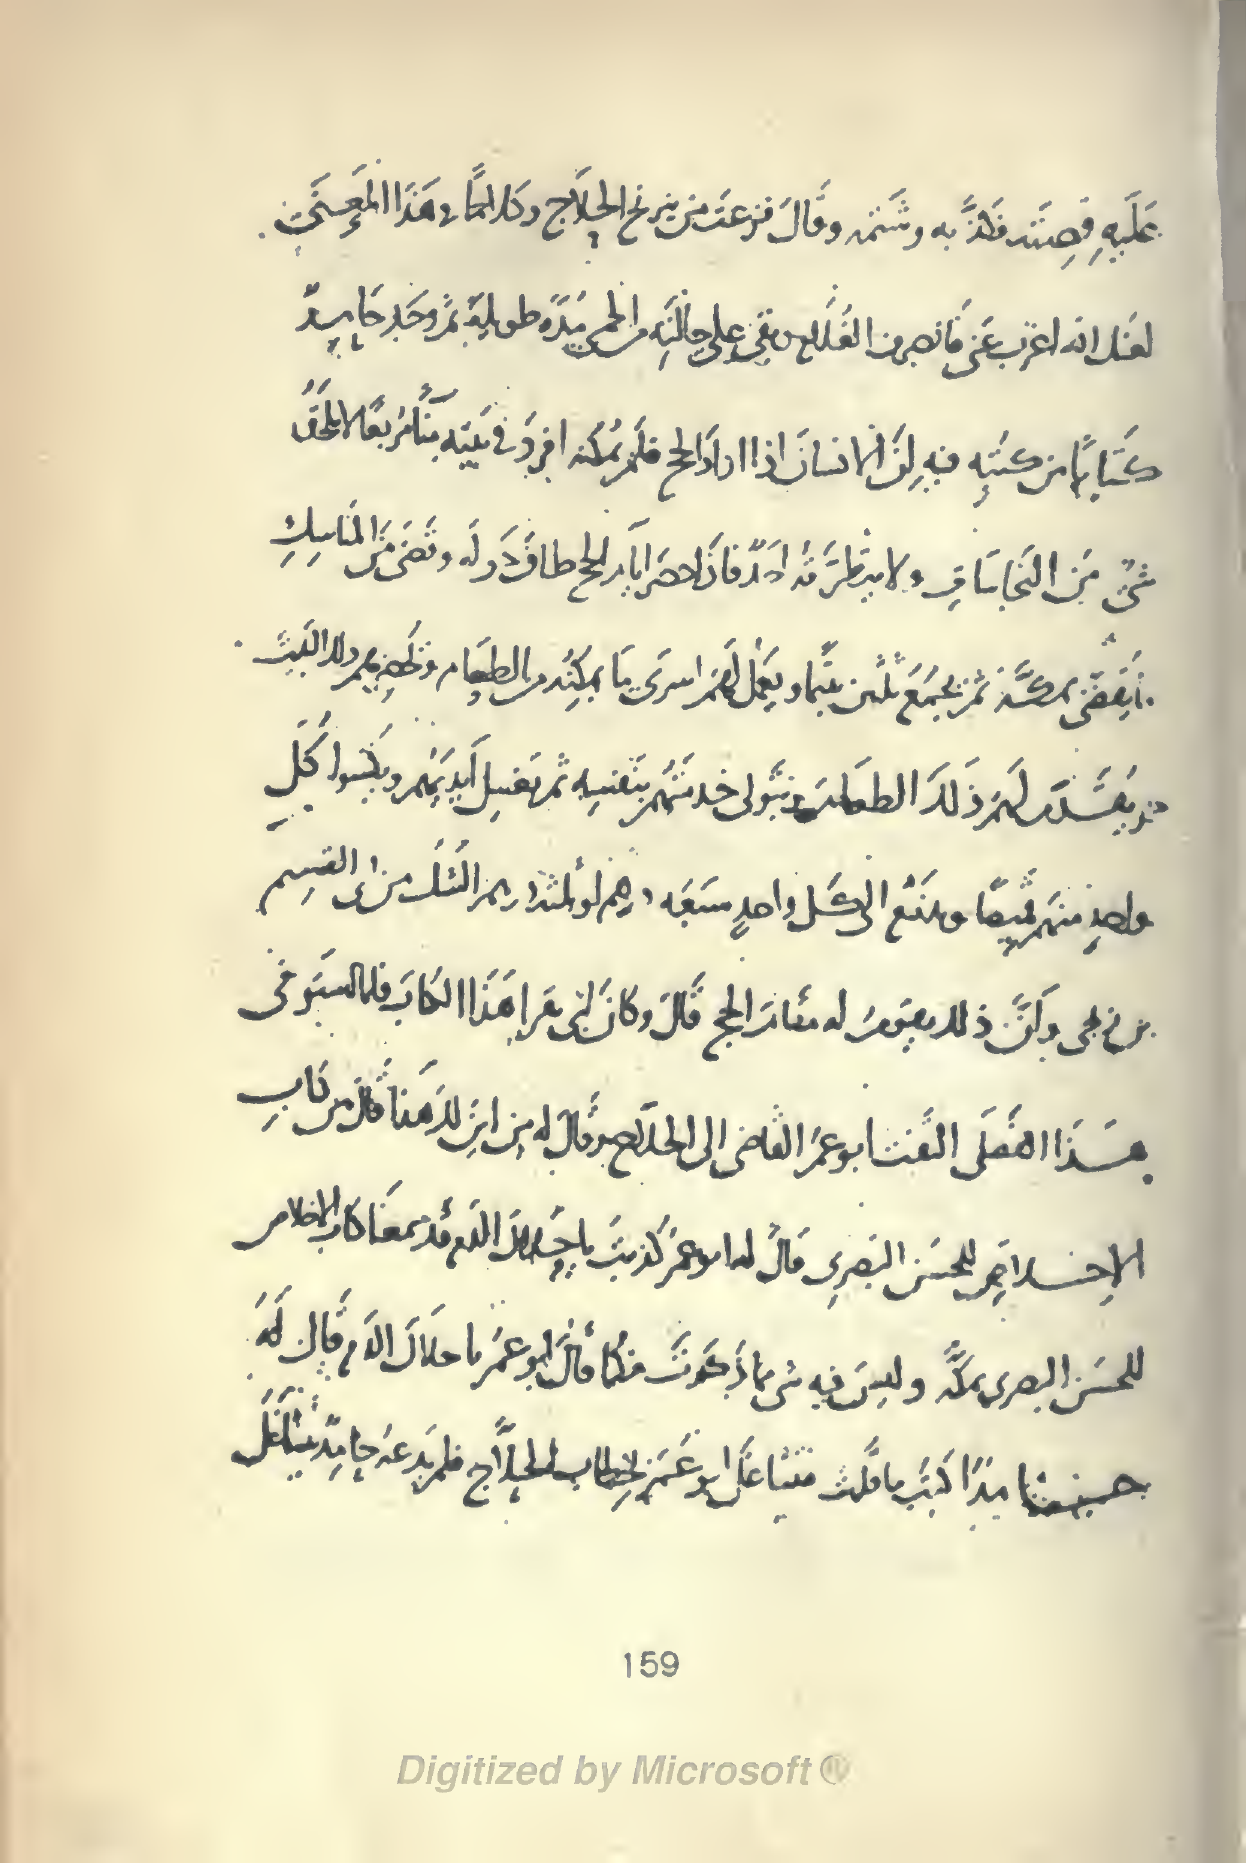 عَلَيهِ قِصِتَه فكذّبه وشتمه وقَالَ فزعت من نيرنج الحلّاج وكلاما في هَذَا المَعنَى
لعنك الله اغرب عَني فانصرف الغلام وبقى على حالته من الحمى مُدّه طويلةً ثم وجَد حَامِدٌ
كتَابًا من كتبِهِ فيه اِنّ الانسانَ اذا ارادَ الحج فلم يمكنه افردَ في بَيتِه بِنَآءً مُربعًا لا يلحقُه
شئ مِن النجاسَاتِ ولا يتطرَقه احَدٌ فاذا حضرَ ايّام الحج طافَ حَوله وقضَى مِن المنَاسِكِ
ما يقضى بمكَّة ثم يجمَعُ ثلثين يتيمًا ويَعمل لهم اسرى مَا يمكنُه من الطعَام ويحضرهم ذلك البَيتَ
ويقدّم لهم ذَلكَ الطعامَ ويتولى خدمتهم بنفسِه ثم يغسل ايديَهم ويكسوا كُل
واحدٍ منهم قميصًا ويدفَع الى كل واحدٍ سَبعَه دراهم او ثلثة دراهم الشك من ابى القسِم
بن زنجى وَاَنَّ ذلك يقومُ له مقامَ الحج قَالَ وكانَ ابى يقرا هَذَا الكتابَ فلما استوفى
هَذَا الفصَل التفت ابو عمر القاضى الى الحلّاج وقالَ له مِن اينَ لكَ هَذا قال من كتابِ
الاِخلاصِ للحسَن البَصرِى قالَ له ابو عمَر كذبتَ يا حَلالَ الدَم قد سمعنَا كتاب الاخلاص
للحسَن البصرى بمكّه وليسَ فيه شى مما ذَكرتَ فلما قالَ ابو عمَر يا حلالَ الدَم قال لَهُ
حَامِد اكتب بما قلتَ فتشاغَل ابو عُمَر بخِطاب الحلّاج فلم يَدعه حامِدٌ يتشَاغل
159
Digitized by Microsoft ®